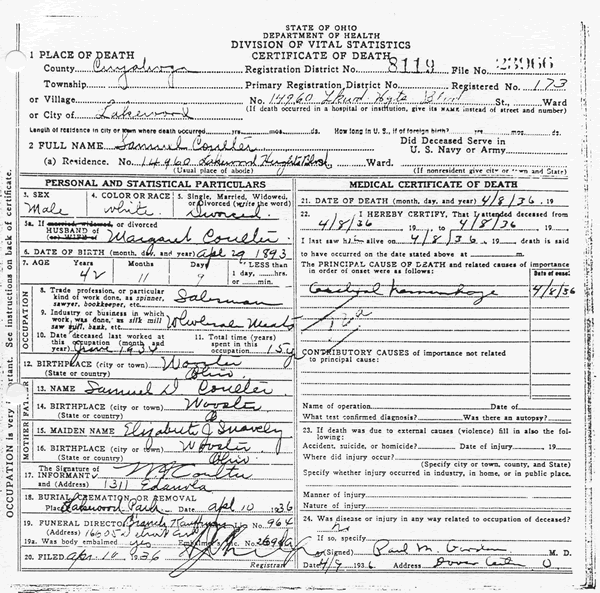 STATE OF OHIO
DEPARTMENT OF HEALTH
DIVISION OF VITAL STATISTICS
CERTIFICATE OF DEATH
1 PLACE OF DEATH
County Cuyahoga Registration District No. 8119 File No. 23966
Township Primary Registration District No. Registered No. 173
or Village No. 14960 Blvd St., Ward
(If death occurred in a hospital or institution, give its NAME instead of street and number)
or City of Lakewood
Length of residence in city or town where death occurred yrs. mos. ds. How long in U. S., if of foreign birth? yrs. mos. ds.
2 FULL NAME Samuel Coulter Did Deceased Serve in U. S. Navy or Army
(a) Residence. No. 14960 Lakewood Heights Blvd Ward.
(Usual place of abode) (If nonresident give city or town and State)
PERSONAL AND STATISTICAL PARTICULARS
3. SEX Male
4. COLOR OR RACE White
5. Single, Married, Widowed, or Divorced (write the word) Divorced
5a. If married, widowed, or divorced
HUSBAND of
(or) WIFE of Margaret Coulter
6. DATE OF BIRTH (month, day, and year) Apr 29 1893
7. AGE Years 42 Months 11 Days 9 If LESS than 1 day, hrs. or min.
OCCUPATION
8. Trade, profession, or particular kind of work done, as spinner, sawyer, bookkeeper, etc. Salesman
9. Industry or business in which work was done, as silk mill saw mill, bank, etc. Wholesale Meats
10. Date deceased last worked at this occupation (month and year) June 193
11. Total time (years) spent in this occupation 15
12. BIRTHPLACE (city or town) Wooster
(State or country) Ohio
FATHER
13. NAME Samuel D Coulter
14. BIRTHPLACE (city or town) Wooster
(State or country) O
MOTHER
15. MAIDEN NAME Elizabeth J Snavely
16. BIRTHPLACE (city or town) Wooster
(State or country) Ohio
17. The Signature of INFORMANT Coulter
and (Address) 1311 Edanola
18. BURIAL, CREMATION OR REMOVAL
Place Lakewood Park Date Apr 10 1936
19. FUNERAL DIRECTOR Lic. No. 964
(Address) 16205 Detroit
19a. Was body embalmed yes Embalmer's Lic. No.
20. FILED Apr 10 1936 Registrar
MEDICAL CERTIFICATE OF DEATH
21. DATE OF DEATH (month, day, and year) 4/8/36 , 19
22. I HEREBY CERTIFY, That I attended deceased from
4/8/36 , 19 , to 4/8/36 , 19
I last saw him alive on 4/8/36 , 19 , death is said
to have occurred on the date stated above at m.
The PRINCIPAL CAUSE OF DEATH and related causes of importance in order of onset were as follows:
Date of onset
Cerebral hemorrhage 4/8/36
CONTRIBUTORY CAUSES of importance not related to principal cause:
Name of operation Date of
What test confirmed diagnosis? Was there an autopsy?
23. If death was due to external causes (violence) fill in also the following:
Accident, suicide, or homicide? Date of injury 19
Where did injury occur?
(Specify city or town, county, and State)
Specify whether injury occurred in industry, in home, or in public place.
Manner of injury
Nature of injury
24. Was disease or injury in any way related to occupation of deceased?
If so, specify No
(Signed) Paul M. M. D.
Date 4/9 1936 Address Dover Center O
OCCUPATION is very important. See instructions on back of certificate.